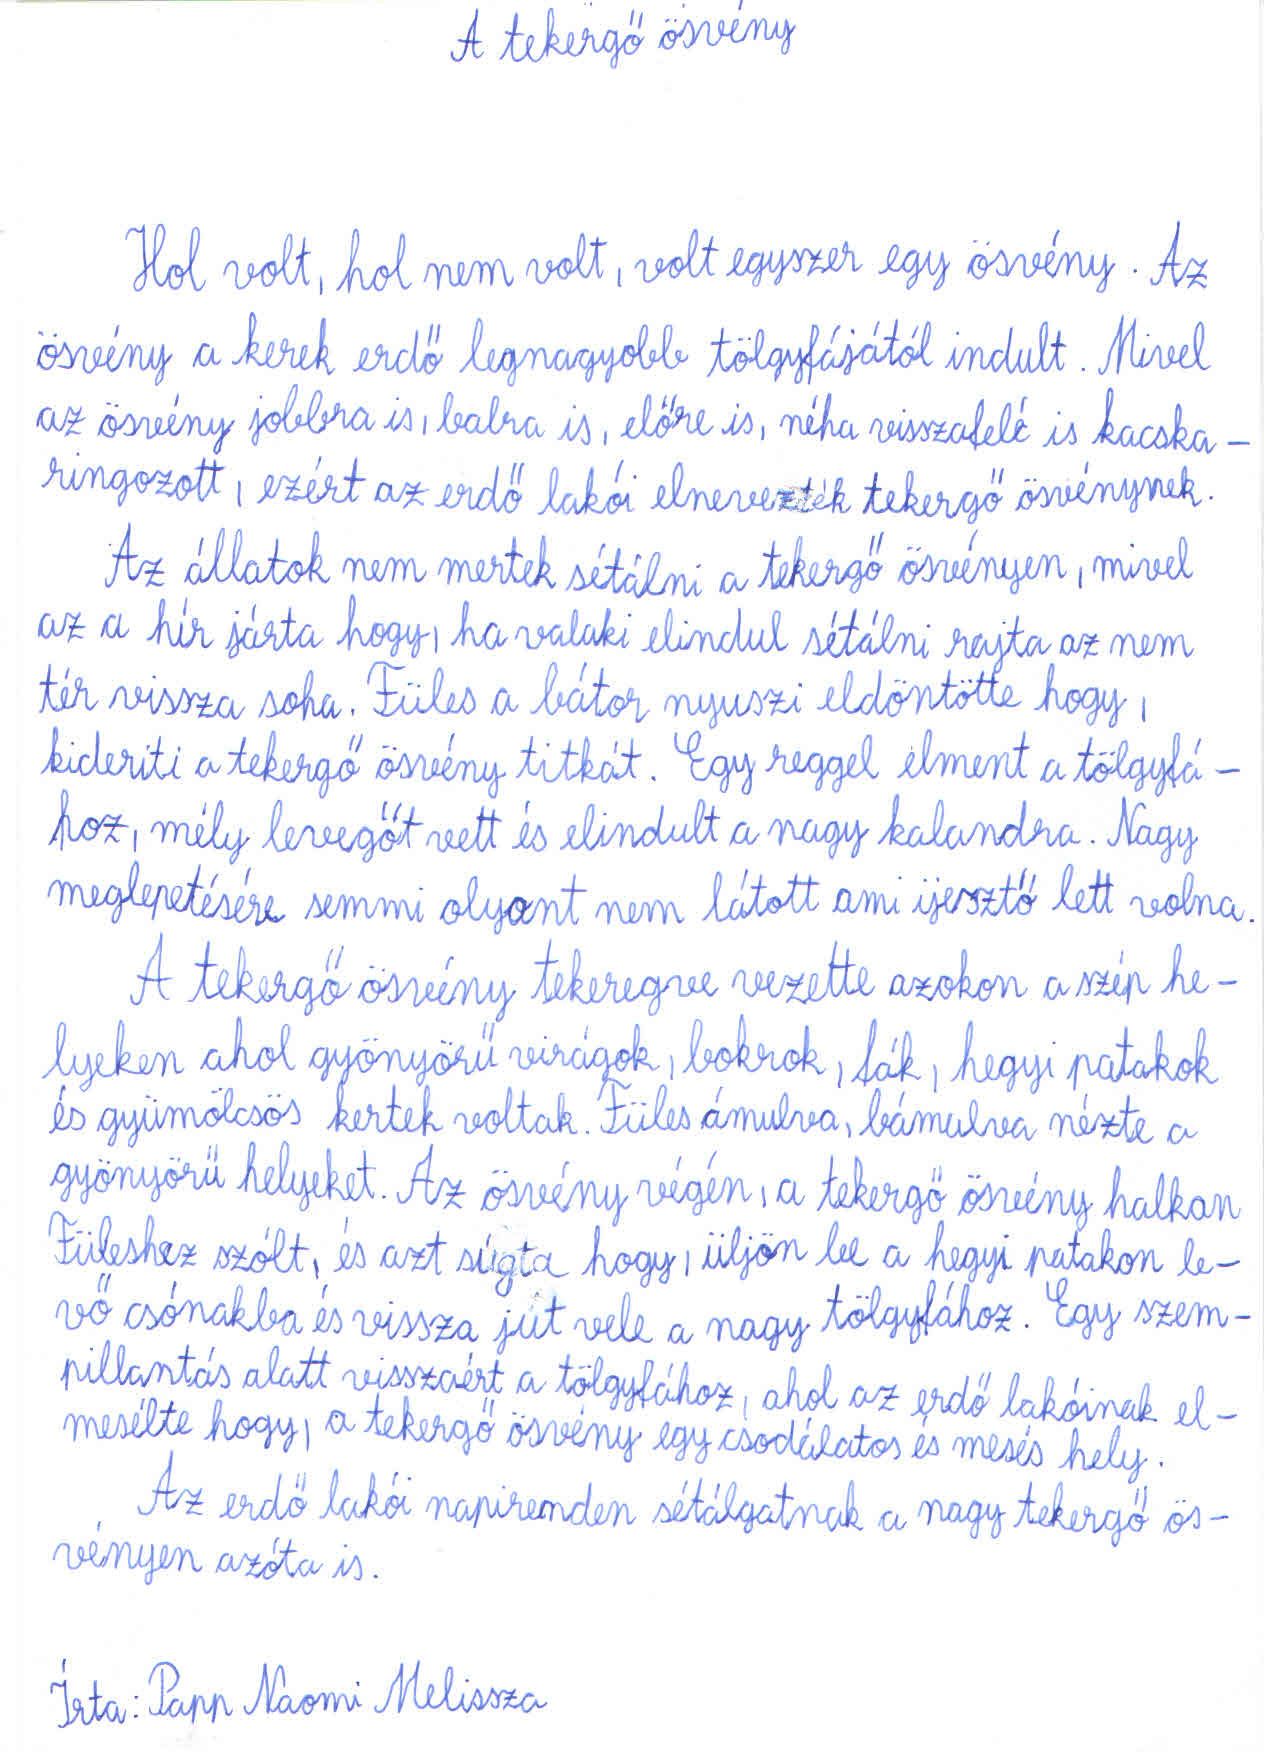 A tekergő ösvény
Hol volt, hol nem volt, volt egyszer egy ösvény. Az
ösvény a kerek erdő legnagyobb tölgyfájától indult. Mivel
az ösvény jobbra is, balra is, előre is, néha visszafelé is kacska-
ringozott, ezért az erdő lakói elnevezték tekergő ösvénynek.
Az állatok nem mertek sétálni a tekergő ösvényen, mivel
az a hír járta hogy, ha valaki elindul sétálni rajta az nem
tér vissza soha. Füles a bátor nyuszi eldöntötte hogy,
kideríti a tekergő ösvény titkát. Egy reggel elment a tölgyfá-
hoz, mély levegőt vett és elindult a nagy kalandra. Nagy
meglepetésére semmi olyant nem látott ami ijesztő lett volna.
A tekergő ösvény tekeregve vezette azokon a szép he-
lyeken ahol gyönyörű virágok, bokrok, fák, hegyi patakok
és gyümölcsös kertek voltak. Füles ámulva, bámulva nézte a
gyönyörű helyeket. Az ösvény végén, a tekergő ösvény halkan
Füleshez szólt, és azt súgta hogy, üljön be a hegyi patakon le-
vő csónakba és vissza jut vele a nagy tölgyfához. Egy szem-
pillantás alatt visszaért a tölgyfához, ahol az erdő lakóinak el-
mesélte hogy, a tekergő ösvény egy csodálatos és mesés hely.
Az erdő lakói napiremden sétálgatnak a nagy tekergő ös-
vényen azóta is.
Írta: Papp Naomi Melissza